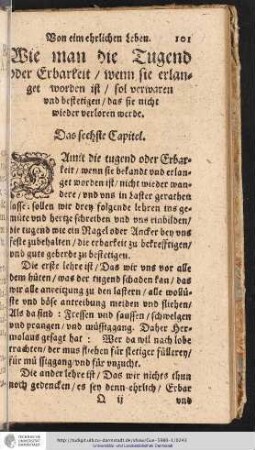 Von eim ehrlichen Leben. 101
Wie man die Tugend
oder Erbarkeit / wenn sie erlan-
get worden ist / sol verwaren
und bestetigen / das sie nicht
wieder verloren werde.
Das sechste Capitel.
DAmit die tugend oder Erbar-
keit / wenn sie bekandt und erlan-
get worden ist / nicht wieder wan-
dere / und uns in Laster gerathen
lasse: sollen wir drey folgende lehren ins ge-
müte und hertze schreiben und uns einbilden /
die tugend wie ein Nagel oder Ancker bey uns
feste zubehalten / die erbarkeit zu bekrefftigen /
und gute geberde zu bestetigen.
Die erste lehre ist / Das wir uns vor alle
dem hüten / was der tugend schaden kan / das
wir alle anreitzung zu den lastern / alle wollü-
ste und böse antreibung meiden und fliehen /
Als da sind: Fressen und sauffen / schwelgen
und prangen / und müssiggang. Daher Her-
molaus gesagt hat: Wer da wil nach lobe
trachten / der mus fliehen für stetiger füllerey /
für müssiggang / und für unzucht.
Die ander lehre ist / Das wir nichts thun
noch gedencken / es sey denn ehrlich / Erbar
Q ij und